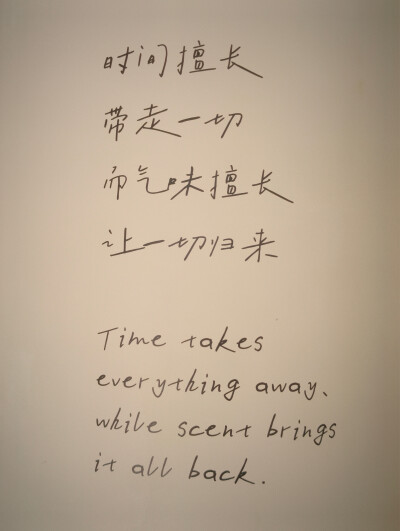 时间擅长
带走一切
而气味擅长
让一切归来
Time takes
everything away、
while scent brings
it all back.